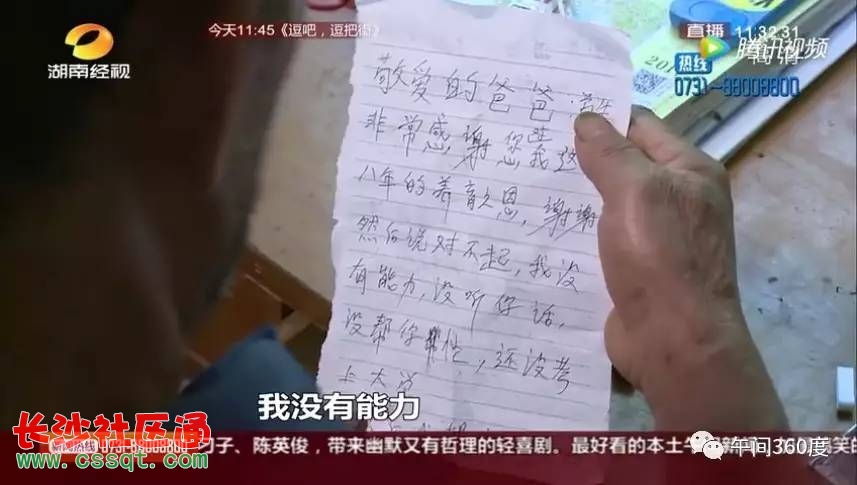 今天11:45《逗吧，逗把街》
直播 11:32:31
湖南经视
腾讯视频
热线
0731-88008800
敬爱的爸爸
非常感谢您这我这
八年的养育之恩，谢谢
然后说对不起，我没
有能力，没听你话，
没帮你忙，还没考
上大学
我没有能力
长沙社区通
www.cssqt.com
、陈英俊，带来幽默又有哲理的轻喜剧。最好看的本土午
午间360度